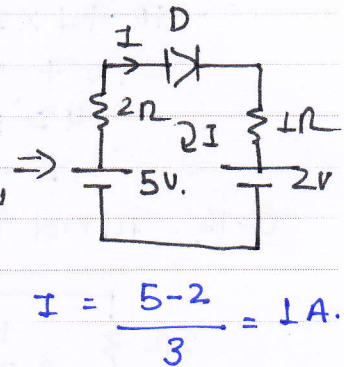 D
I
2Ω
I
1Ω
⇒
5V.
2V
I = 5-2 / 3 = 1A.